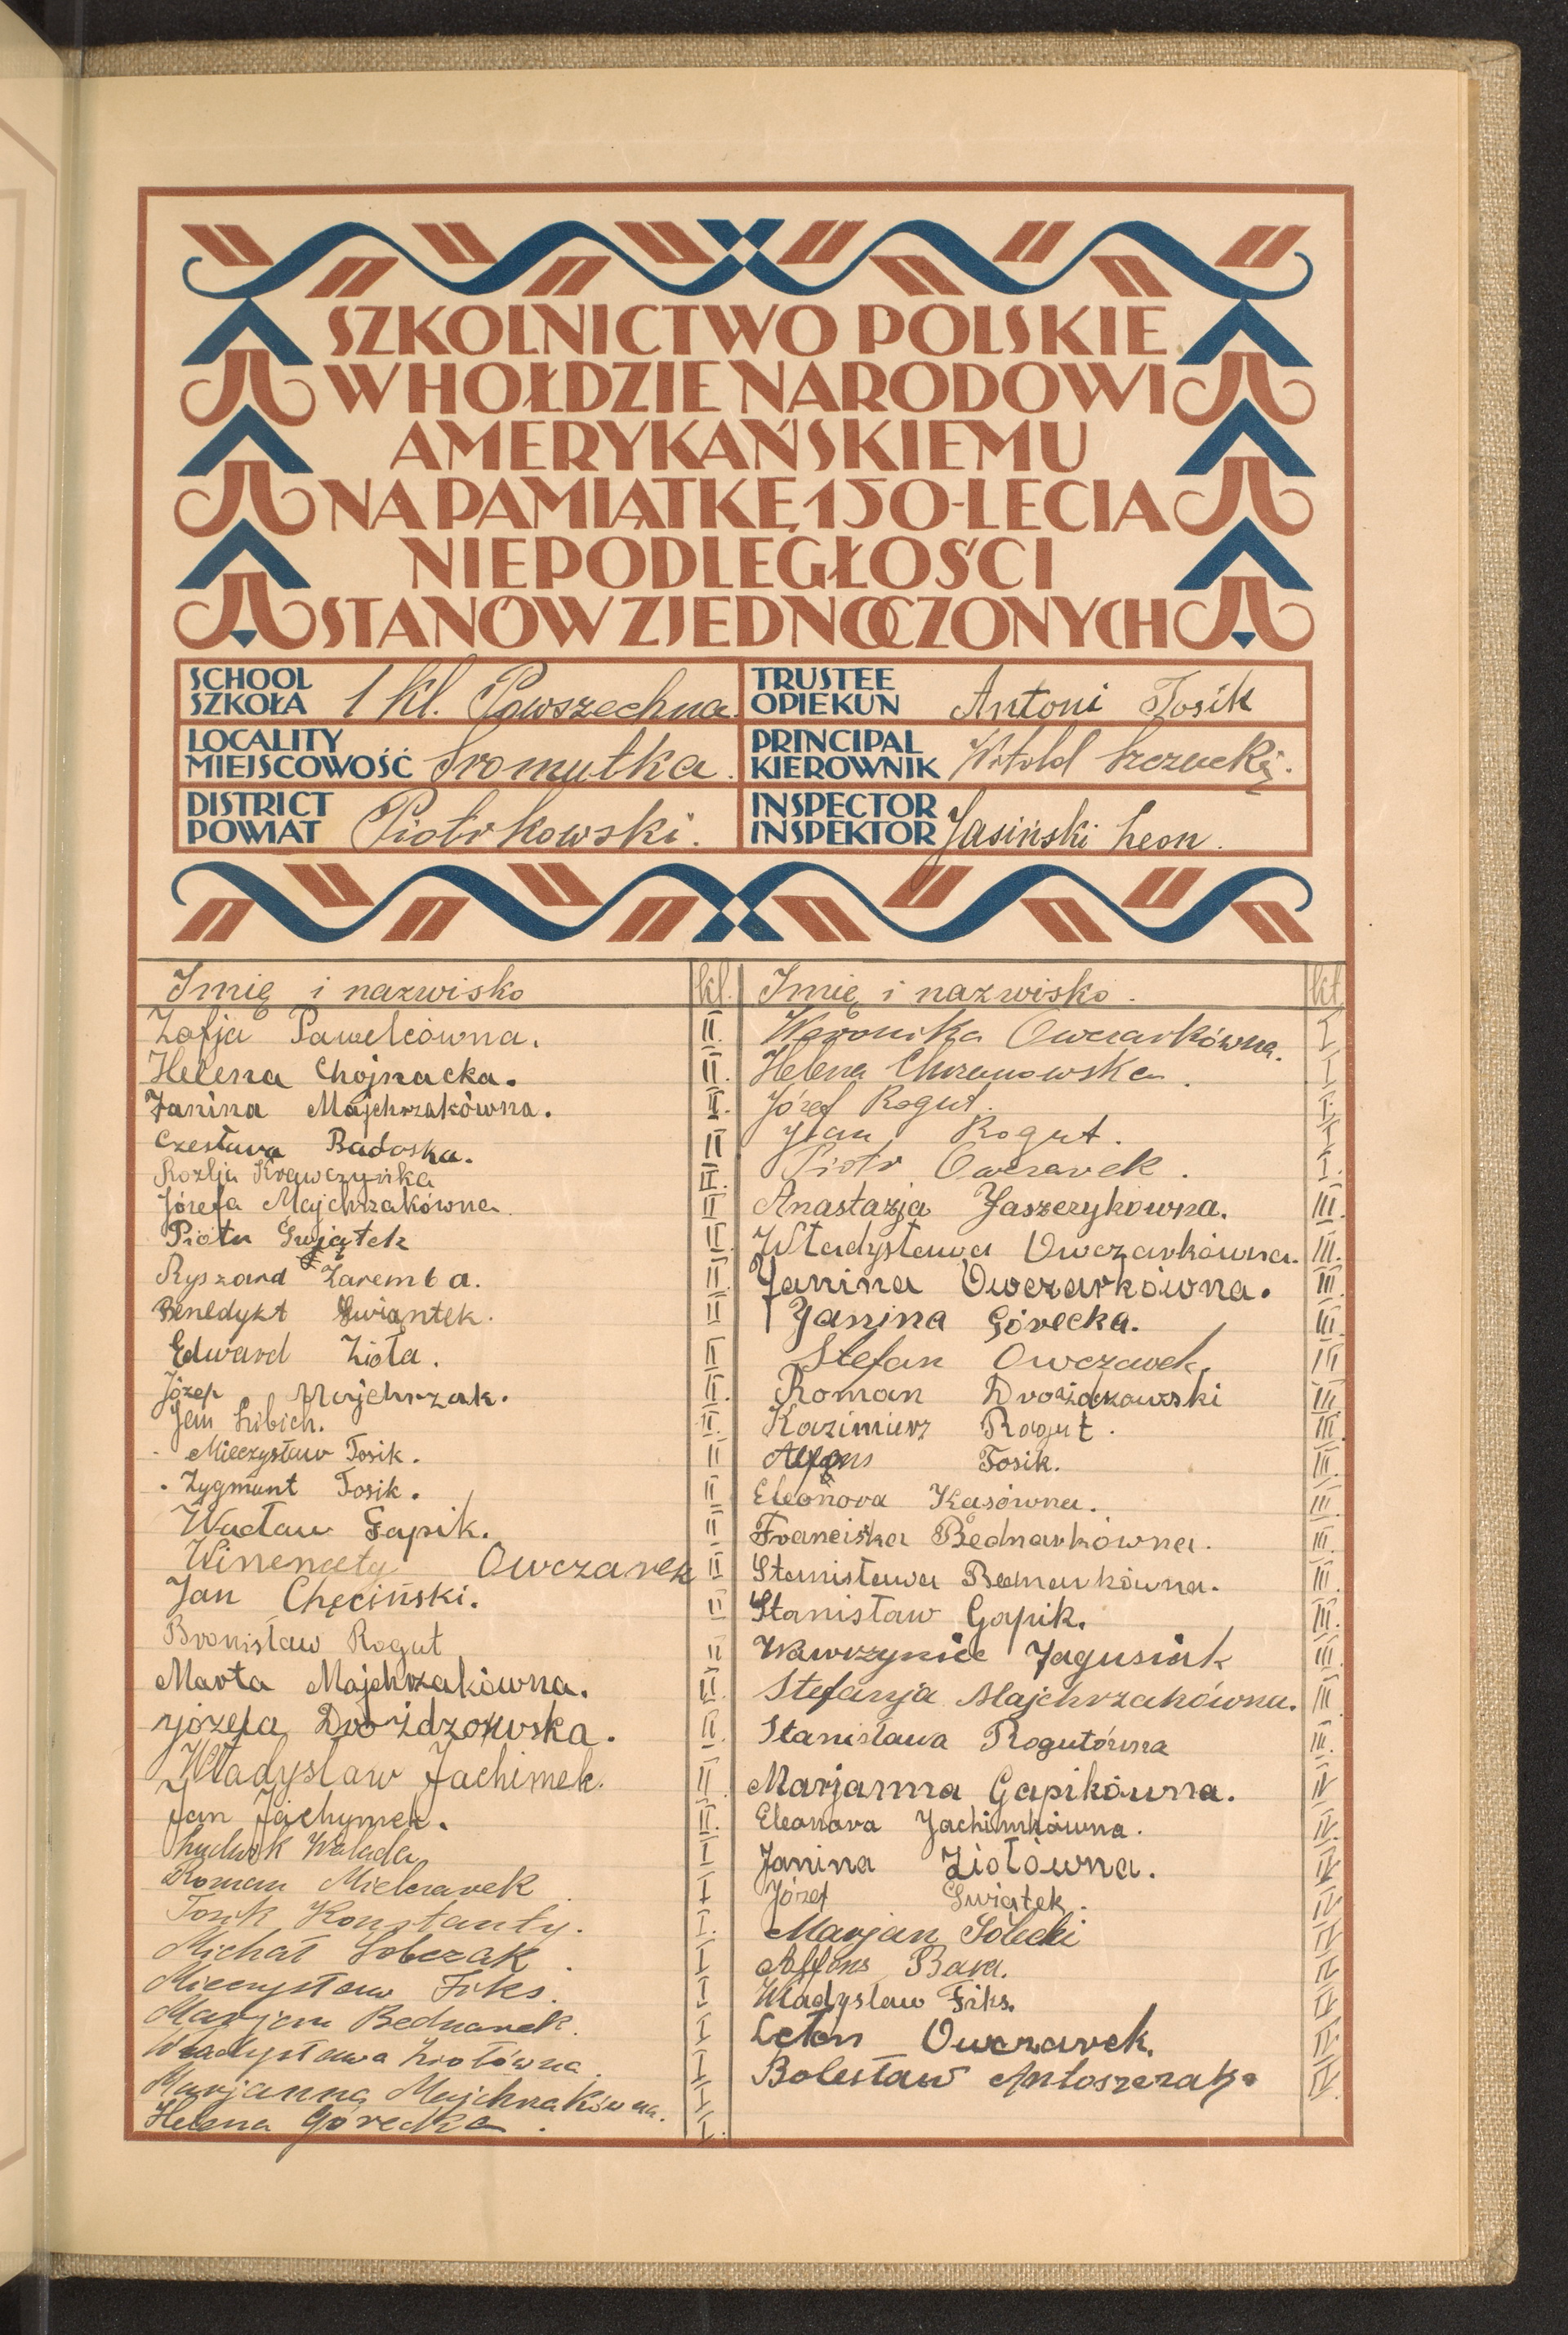 SZKOLNICTWO POLSKIE
W HOŁDZIE NARODOWI
AMERYKAŃSKIEMU
NA PAMIĄTKĘ 150-LECIA
NIEPODLEGŁOŚCI
STANÓW ZJEDNOCZONYCH
SCHOOL
SZKOŁA 1 kl. Powszechna
TRUSTEE
OPIEKUN Antoni Tosik
LOCALITY
MIEJSCOWOŚĆ Sromutka.
PRINCIPAL
KIEROWNIK Witold Szczucki.
DISTRICT
POWIAT Piotrkowski.
INSPECTOR
INSPEKTOR Jasiński Leon.
Imię i nazwisko kl.
Zofja Pawelcówna. II.
Helena Chojnacka. II.
Janina Majchrzakówna. II.
Czesława Badoska. II
Rozlja Krawczyńska II.
Józefa Majchrzakówna. II
Piotr Swjątek II.
Ryszard Zaremba. II.
Benedykt Swiąntek. II
Edward Zioła. II
Józef Majchrzak. II.
Jan Libich. II.
Mieczysław Tosik. II
Zygmunt Tosik. II
Wacław Gapik. II
Winencty Owczarek II
Jan Chęciński. II
Bronisław Rogut II
Marta Majchrzakówna. II.
Józefa Drożdzowska. II.
Władysław Jachimek. II
Jan Jachymek. II.
Ludwik Walada I
Roman Mielczarek I
Tosik Konstanty. I.
Michał Sobczak. I
Mieczysław Fiks. I
Marjan Bednarek. I
Władysława Ziołówna I
Marjanna Majchrzakówna. I
Helena Górecka. I.
Imię i nazwisko. kl.
Weronika Owczarkówna. I
Helena Chrzanowska. I
Józef Rogut. I.
Jan Rogut. I
Piotr Owczarek. I.
Anastazja Jaszczykówna. III.
Władysława Owczarkówna. III.
Janina Owczarkówna. III.
Janina Górecka. III.
Stefan Owczarek, III
Roman Drożdzowski III
Kazimierz Rogut. III.
Alfons Tosik. III.
Eleonora Kasówna. III.
Franciszka Bednarkówna. III.
Stanisława Bednarkówna. III.
Stanisław Gapik. III.
Wawrzyniec Jagusiak III.
Stefanja Majchrzakówna. III
Stanisława Rogutówna III.
Marjanna Gapikówna. IV
Eleonora Jachimkówna. IV.
Janina Ziołówna. IV
Józef Swiątek. IV
Marjan Solecki IV
Alfons Bara. IV
Władysław Fiks. IV
Leton Owczarek. IV.
Bolesław Antoszczak. IV.